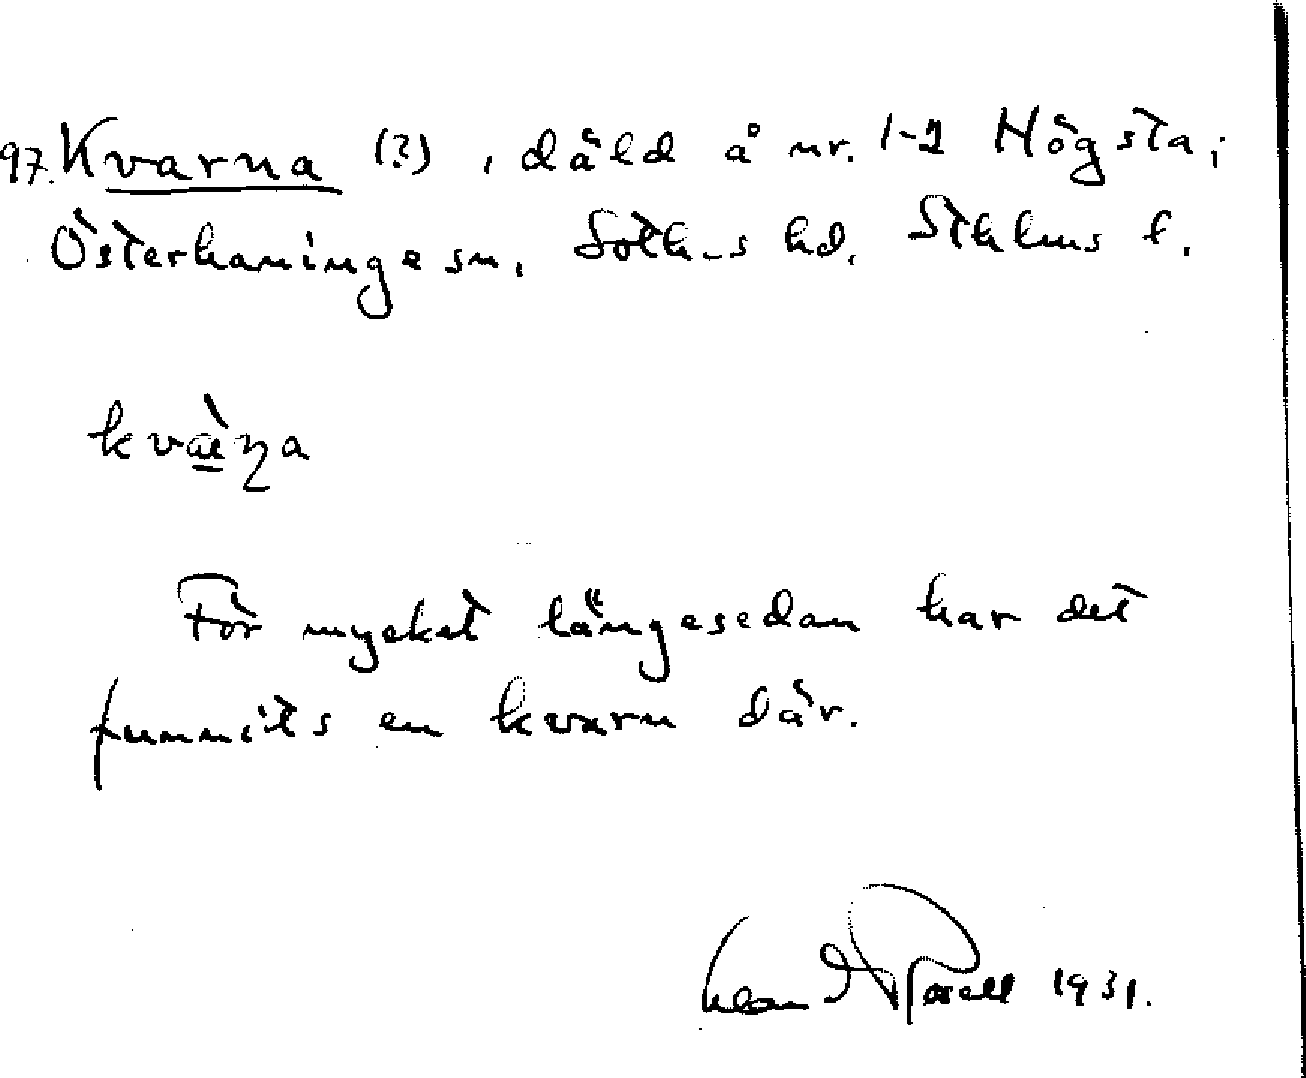 97. Kvarna (?), däld å nr. 1-2 Högsta,
Österhaninge sn, Soth-s hd. Sthlms l.
kvæ̀ɳa
För mycket längesedan har det
funnits en kvarn där.
1931.